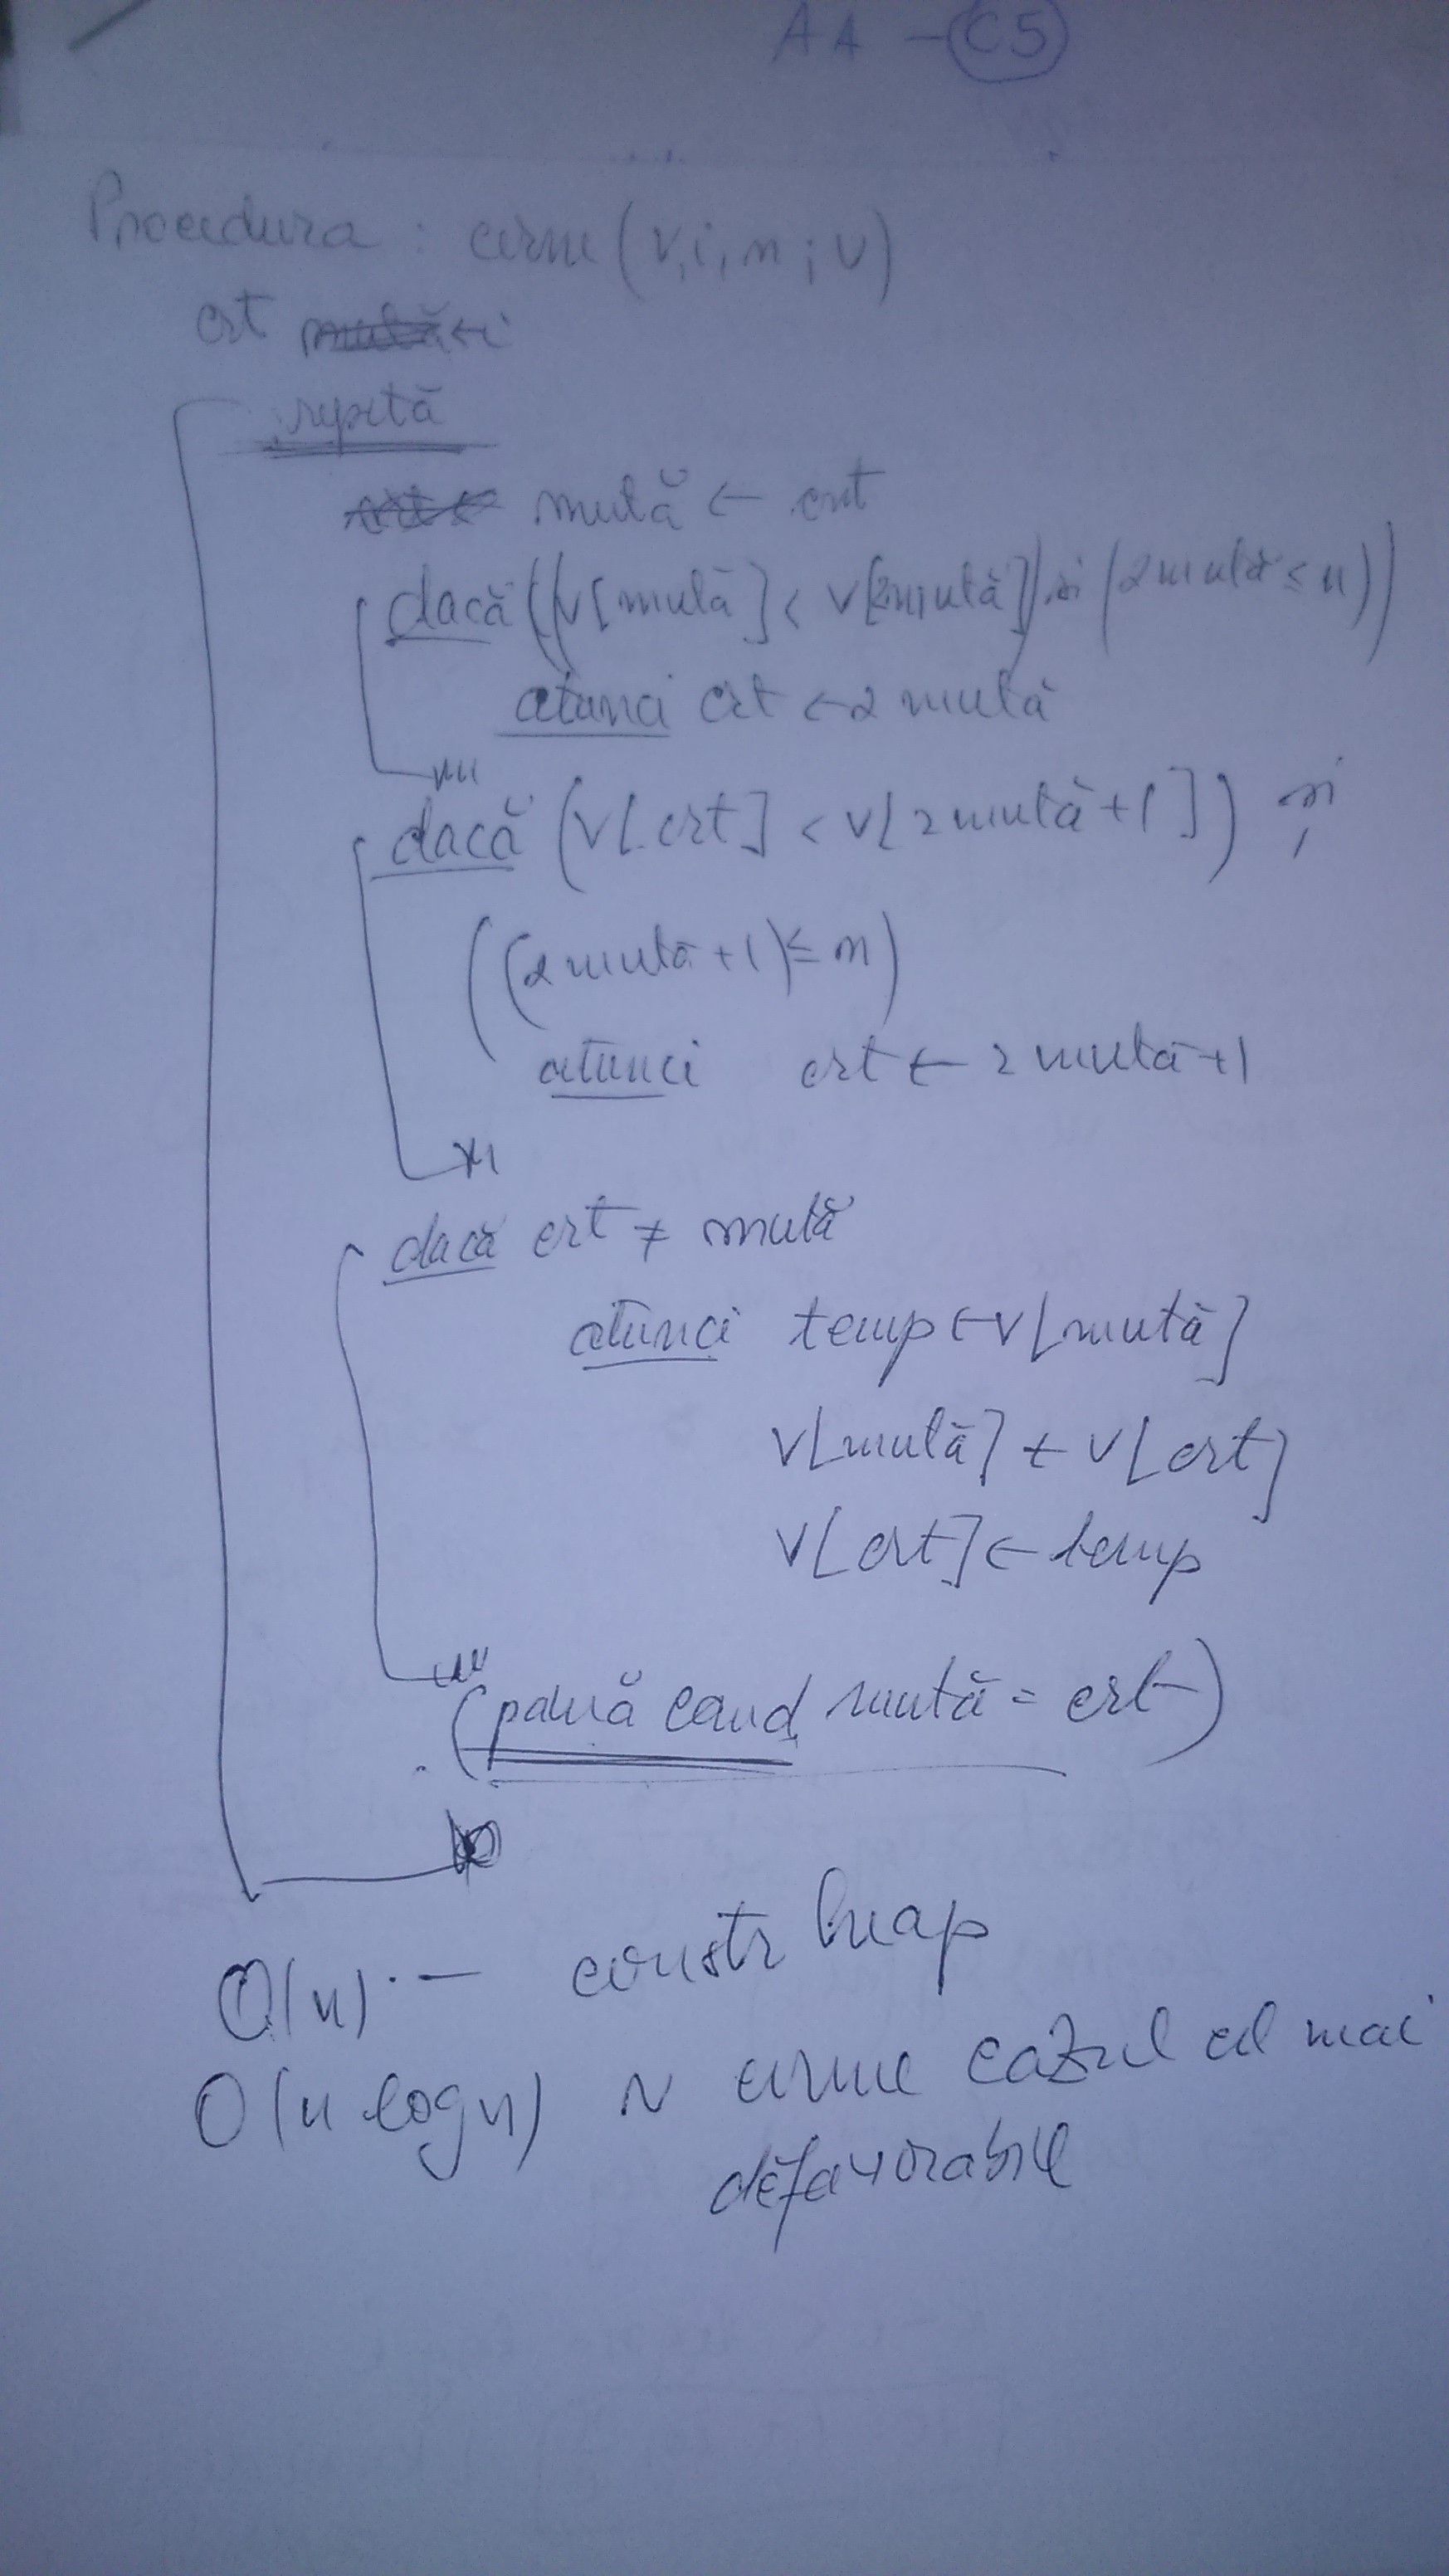 A4 - C5
Procedura : cerne (v, i, n ; v)
crt ← i
repetă
mută ← crt
dacă ((v[mută] < v[2mută]) și (2mută ≤ n))
atunci crt ← 2 mută
dacă (v[crt] < v[2mută+1]) și
((2mută+1) ≤ n)
atunci crt ← 2 mută+1
dacă crt ≠ mută
atunci temp ← v[mută]
v[mută] ← v[crt]
v[crt] ← temp
(până cand mută = crt)
O(n) - constr heap
O(n log n) ~ cerne cazul cel mai
defavorabil